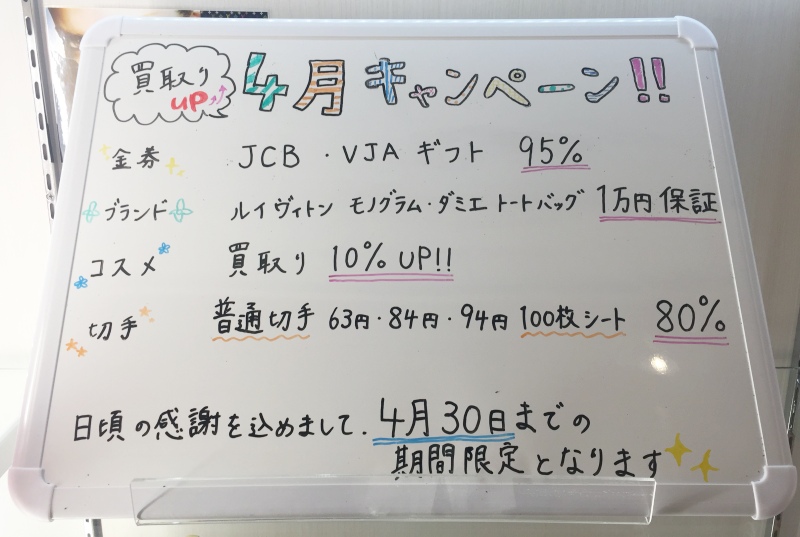 買取り
UP
4月キャンペーン!!
金券 JCB・VJA ギフト 95%
ブランド ルイヴィトン モノグラム・ダミエ トートバッグ 1万円保証
コスメ 買取り 10% UP!!
切手 普通切手 63円・84円・94円 100枚シート 80%
日頃の感謝を込めまして、4月30日までの
期間限定となります